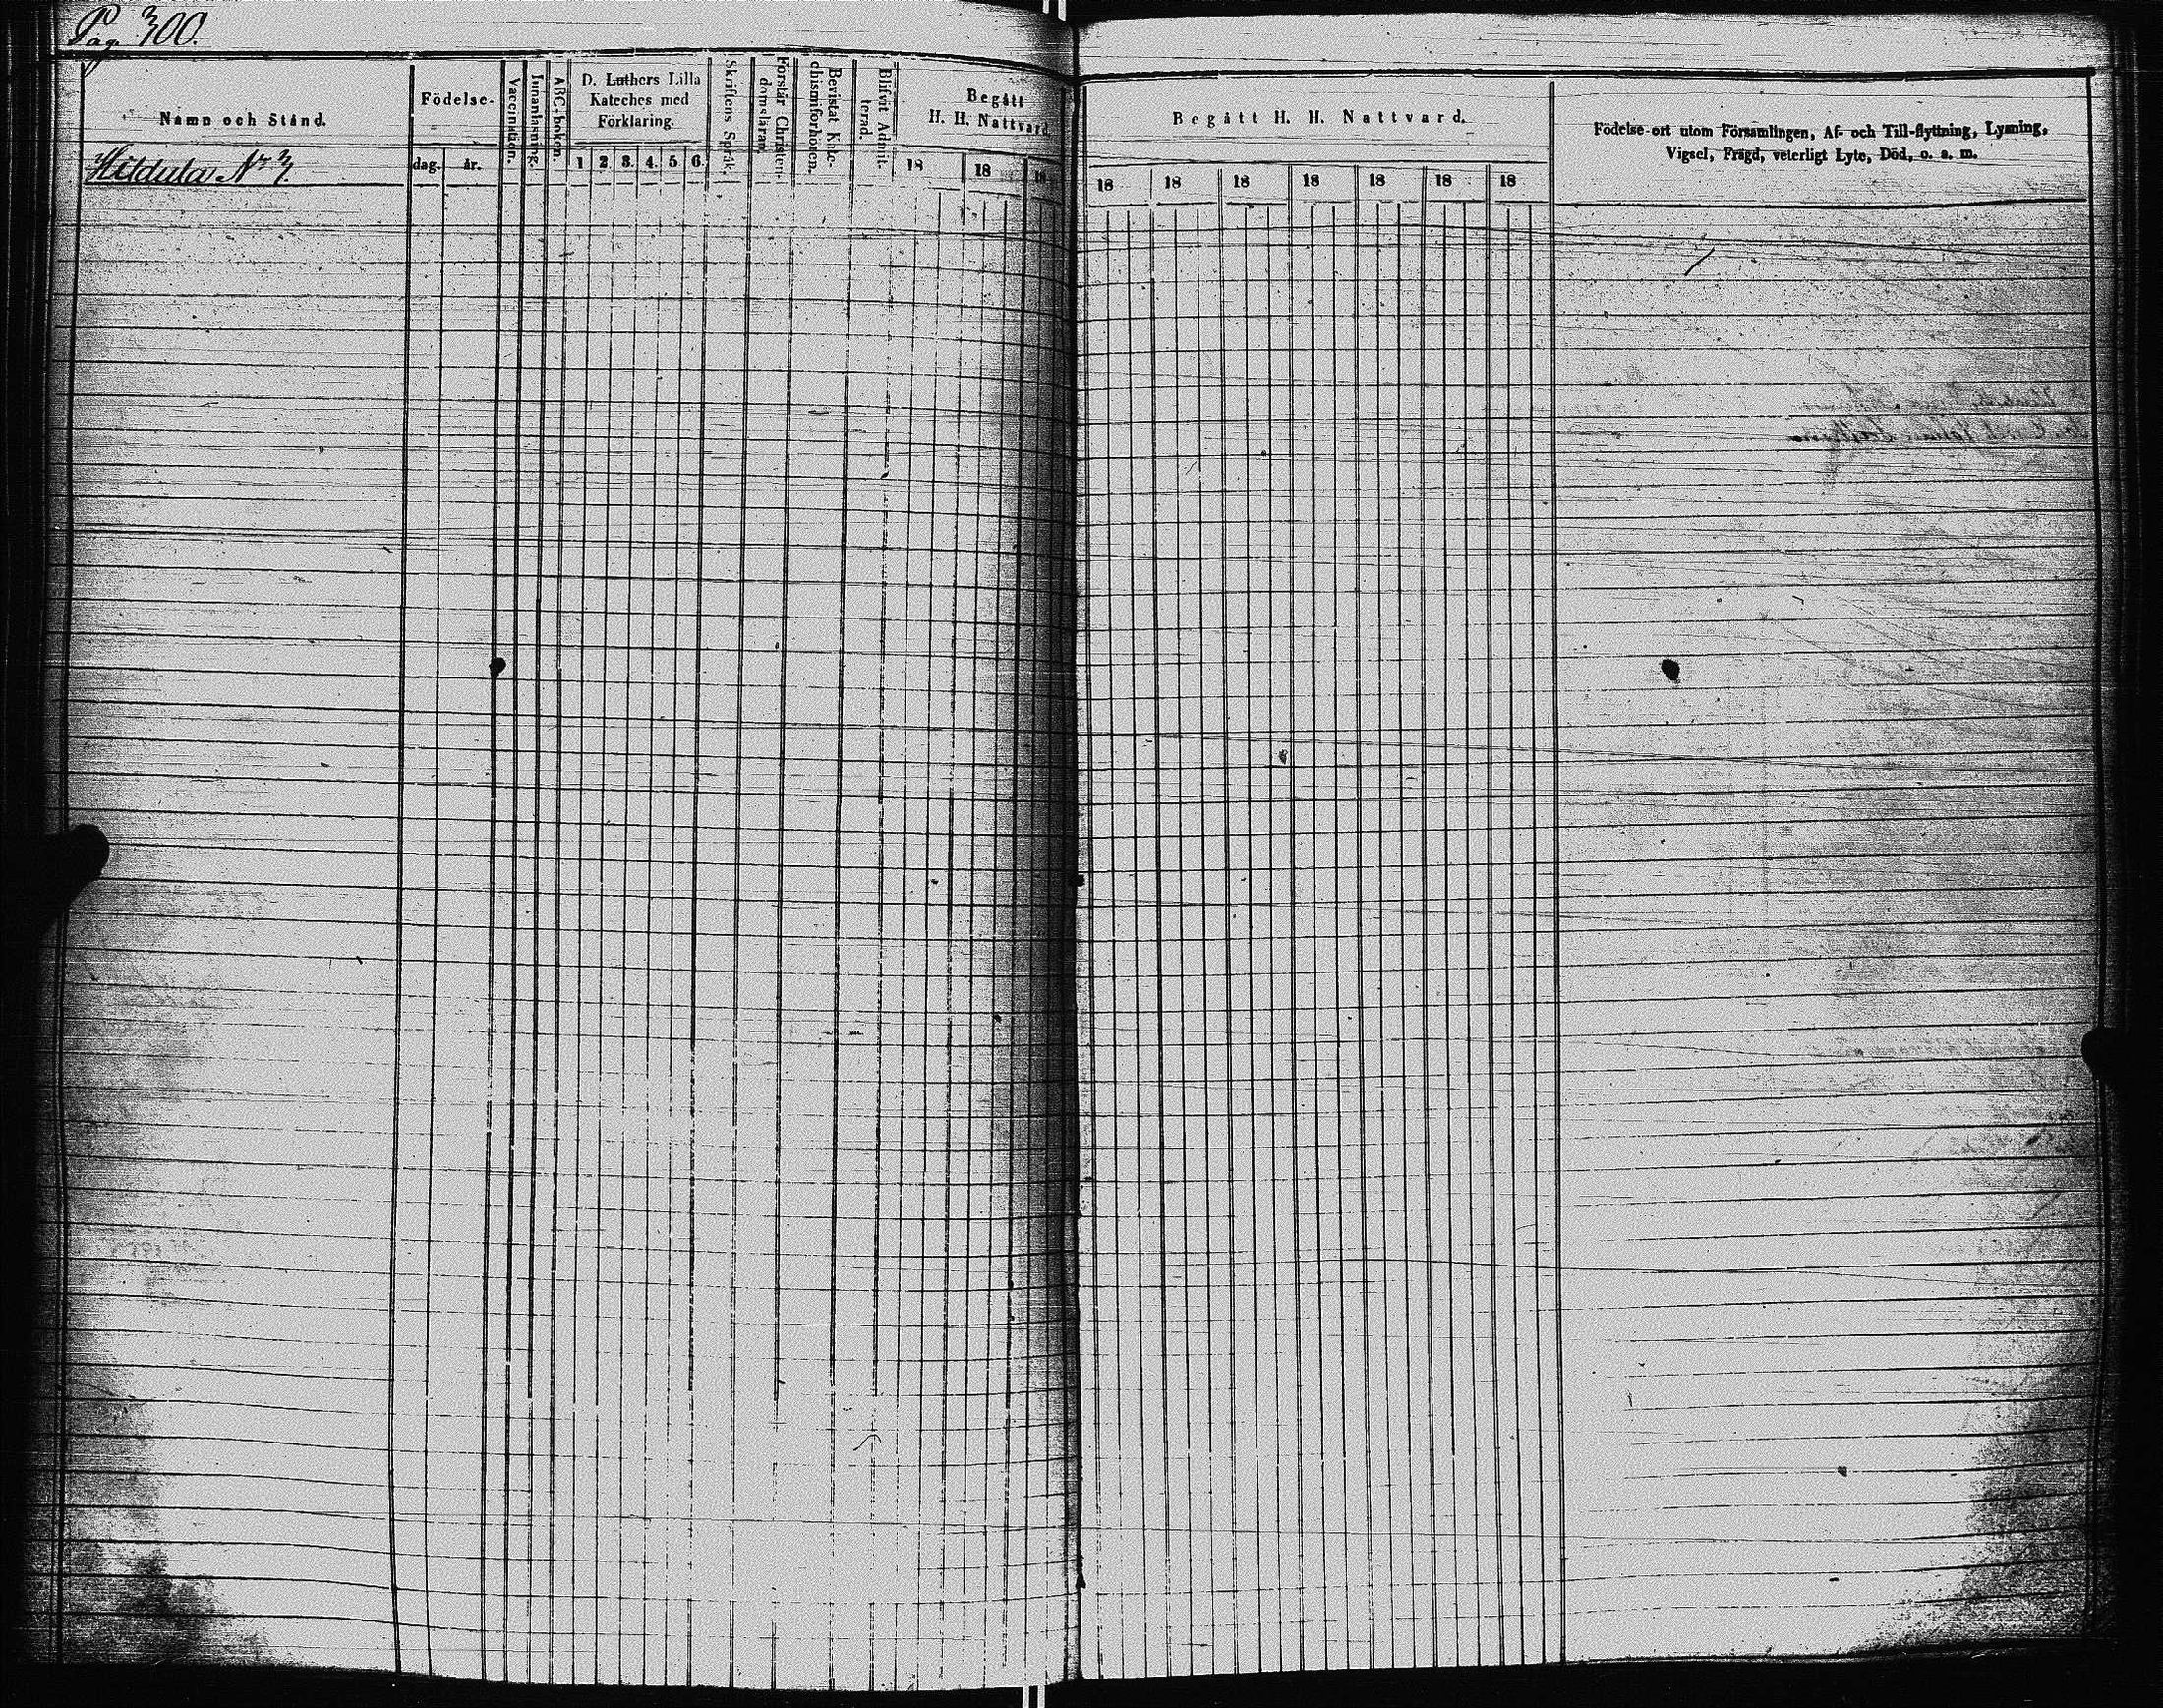 Pag. 300.
Namn och Stånd.
Hildula No 3.
Födelse-
dag.
år.
Vaccination.
Innanläsning.
ABC-boken.
D. Luthers Lilla
Kateches med
Förklaring.
1 2 3. 4. 5 6.
Skriftens Språk.
Förstår Christen-
domsläran.
Bevistat Kate-
chismiförhören.
Blifvit Admit-
terad.
Begått
H. H. Nattvard.
18 18 18
Begått H. H. Nattvard.
18 18 18 18 18 18 18
Födelse-ort utom Församlingen, Af- och Till-flyttning, Lysning,
Vigsel, Frägd, veterligt Lyte, Död, o. s. m.